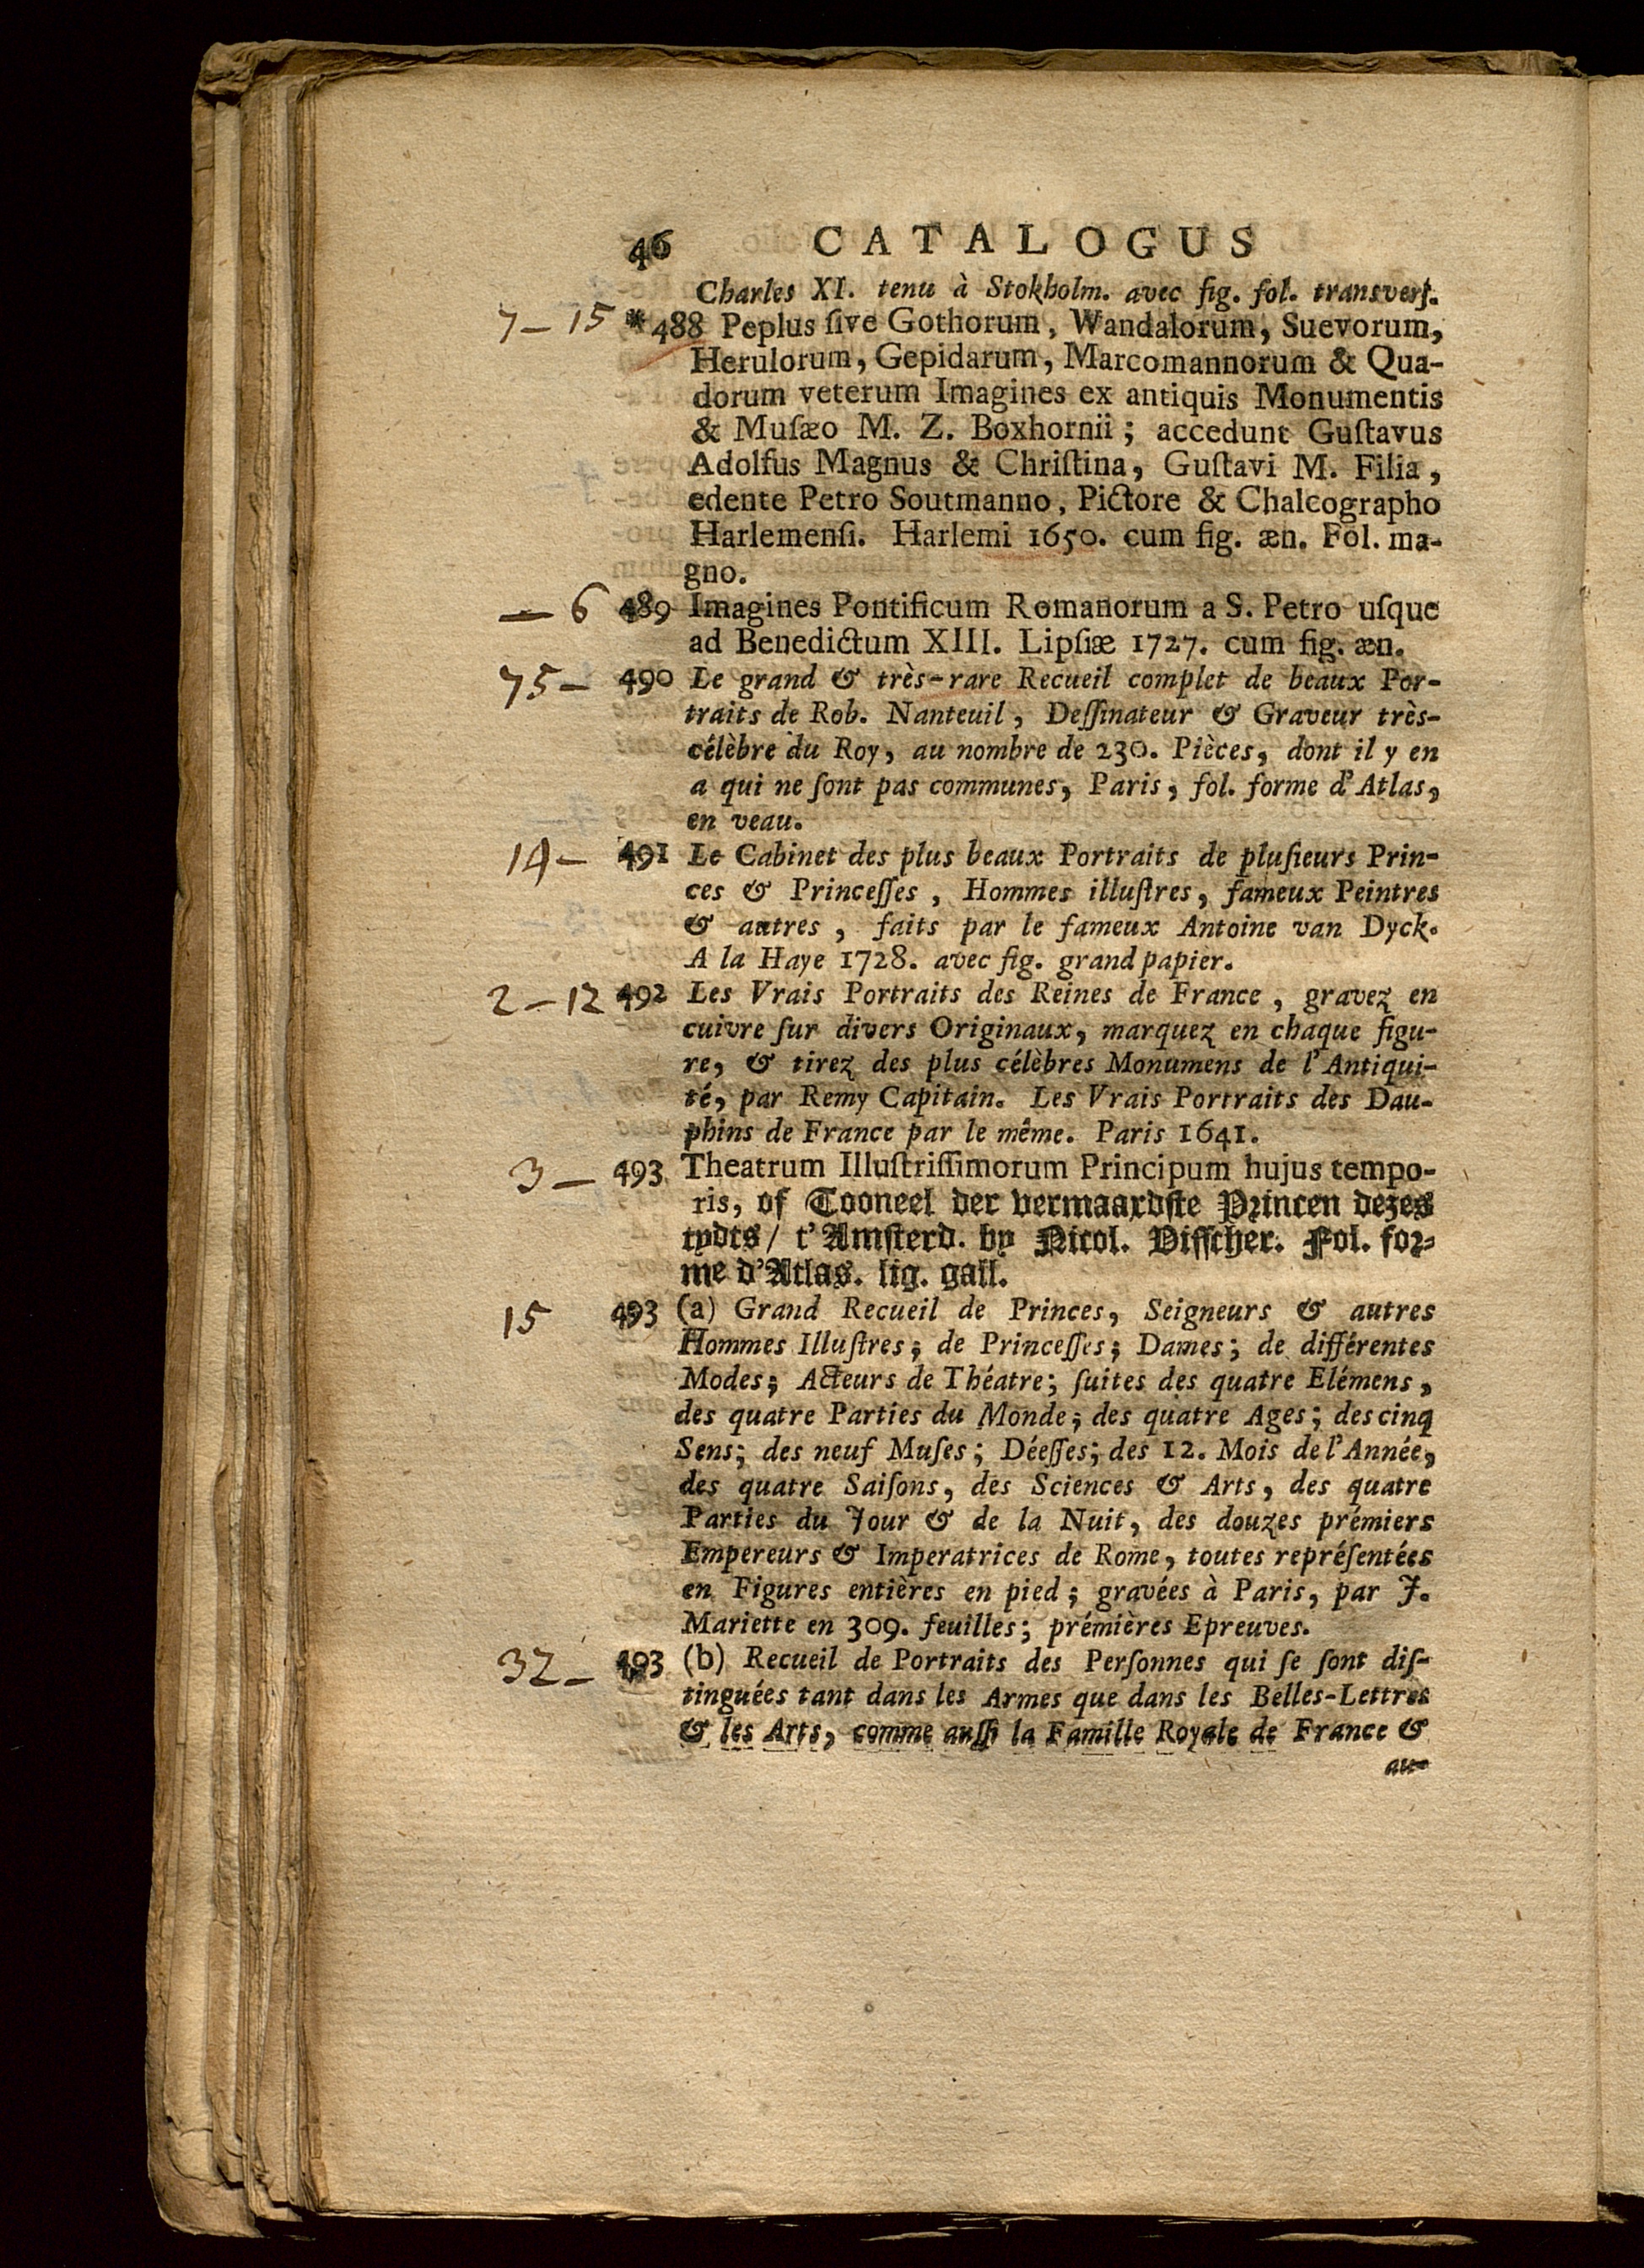 46 CATALOGUS
Charles XI. tenu à Stokholm. avec fig. fol. transverſ.
7 – 15 *488 Peplus ſive Gothorum, Wandalorum, Suevorum,
Herulorum, Gepidarum, Marcomannorum & Qua-
dorum veterum Imagines ex antiquis Monumentis
& Muſæo M. Z. Boxhornii; accedunt Guſtavus
Adolfus Magnus & Chriſtina, Guſtavi M. Filia,
edente Petro Soutmanno, Pictore & Chalcographo
Harlemenſi. Harlemi 1650. cum fig. æn. Fol. ma-
gno.
– 6 489 Imagines Pontificum Romanorum a S. Petro uſque
ad Benedictum XIII. Lipſiæ 1727. cum fig. æn.
75 – 490 Le grand & très-rare Recueil complet de beaux Por-
traits de Rob. Nanteuil, Deſſinateur & Graveur très-
célèbre du Roy, au nombre de 230. Pièces, dont il y en
a qui ne ſont pas communes, Paris, fol. forme d'Atlas,
en veau.
14 – 491 Le Cabinet des plus beaux Portraits de pluſieurs Prin-
ces & Princeſſes, Hommes illuſtres, fameux Peintres
& autres, faits par le fameux Antoine van Dyck.
A la Haye 1728. avec fig. grand papier.
2 – 12 492 Les Vrais Portraits des Reines de France, gravez en
cuivre ſur divers Originaux, marquez en chaque figu-
re, & tirez des plus célèbres Monumens de l'Antiqui-
té, par Remy Capitain. Les Vrais Portraits des Dau-
phins de France par le même. Paris 1641.
3 – 493 Theatrum Illuſtriſſimorum Principum hujus tempo-
ris, of Tooneel der vermaardſte Princen dezes
tydts / t'Amſterd. by Nicol. Viſſcher. Fol. for-
me d'Atlas. lig. gall.
15 493 (a) Grand Recueil de Princes, Seigneurs & autres
Hommes Illuſtres; de Princeſſes; Dames; de différentes
Modes; Acteurs de Théatre; ſuites des quatre Elémens,
des quatre Parties du Monde; des quatre Ages; des cinq
Sens; des neuf Muſes; Déeſſes; des 12. Mois de l'Année,
des quatre Saiſons, des Sciences & Arts, des quatre
Parties du Jour & de la Nuit, des douzes prémiers
Empereurs & Imperatrices de Rome, toutes repréſentées
en Figures entières en pied; gravées à Paris, par J.
Mariette en 309. feuilles; prémières Epreuves.
32 – 493 (b) Recueil de Portraits des Perſonnes qui ſe ſont diſ-
tinguées tant dans les Armes que dans les Belles-Lettres
& les Arts, comme auſſi la Famille Royale de France &
au-